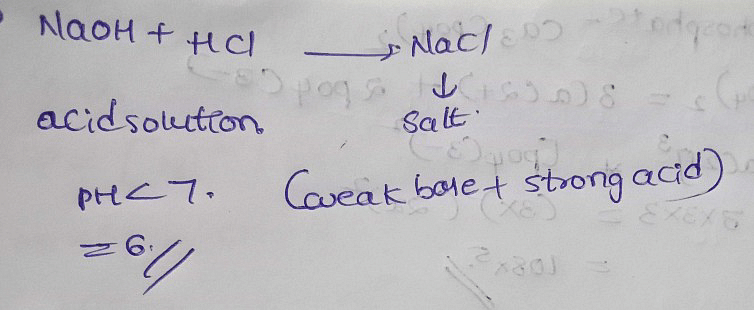 NaOH + HCl → NaCl
↓
acid solution salt.
pH < 7. (weak base + strong acid)
= 6.//